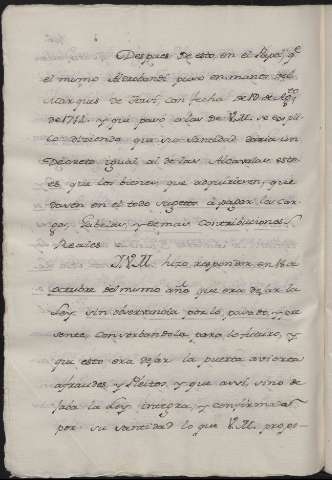 Despues de esto en el Papel qe
el mismo Aldrobandi puso en manos del
Marques de con fecha de 18 de Agto
de 1712. y que pasó a las de V.M. se expli-
có diciendo que su Santidad daria un
Decreto igual al de las Alcavalas, esto
es, que los bienes, que adquiriesen, que
dasen en el todo sugetos à pagar las car-
gas, Gabelas, y demas contribuciones
Reales.
V.M. hizo responder en 18 de
octubre del mismo año que era dejar la
Ley sin observancia por lo pasado, y pre
sente, conservandola para lo futuro, y
que esto era dejar la puerta avierta
a fraudes, y Pleitos, y que assi, sino de
jaba la Ley integra, y confirmadas
por su santidad lo que V.M. propo-